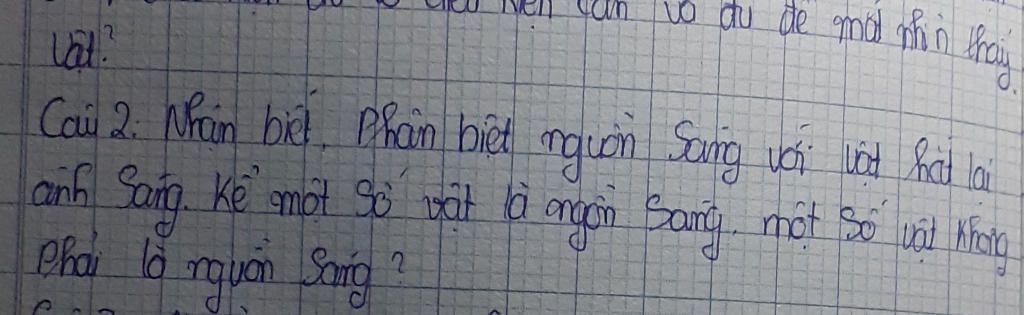 điều kiện cần và đủ để mắt nhìn thấy
vật?
Câu 2. Nhận biết, Phân biệt nguồn Sáng với vật hắt lại
ánh Sáng. Kể một Số vật là nguồn Sáng, một Số vật không
Phải là nguồn Sáng?